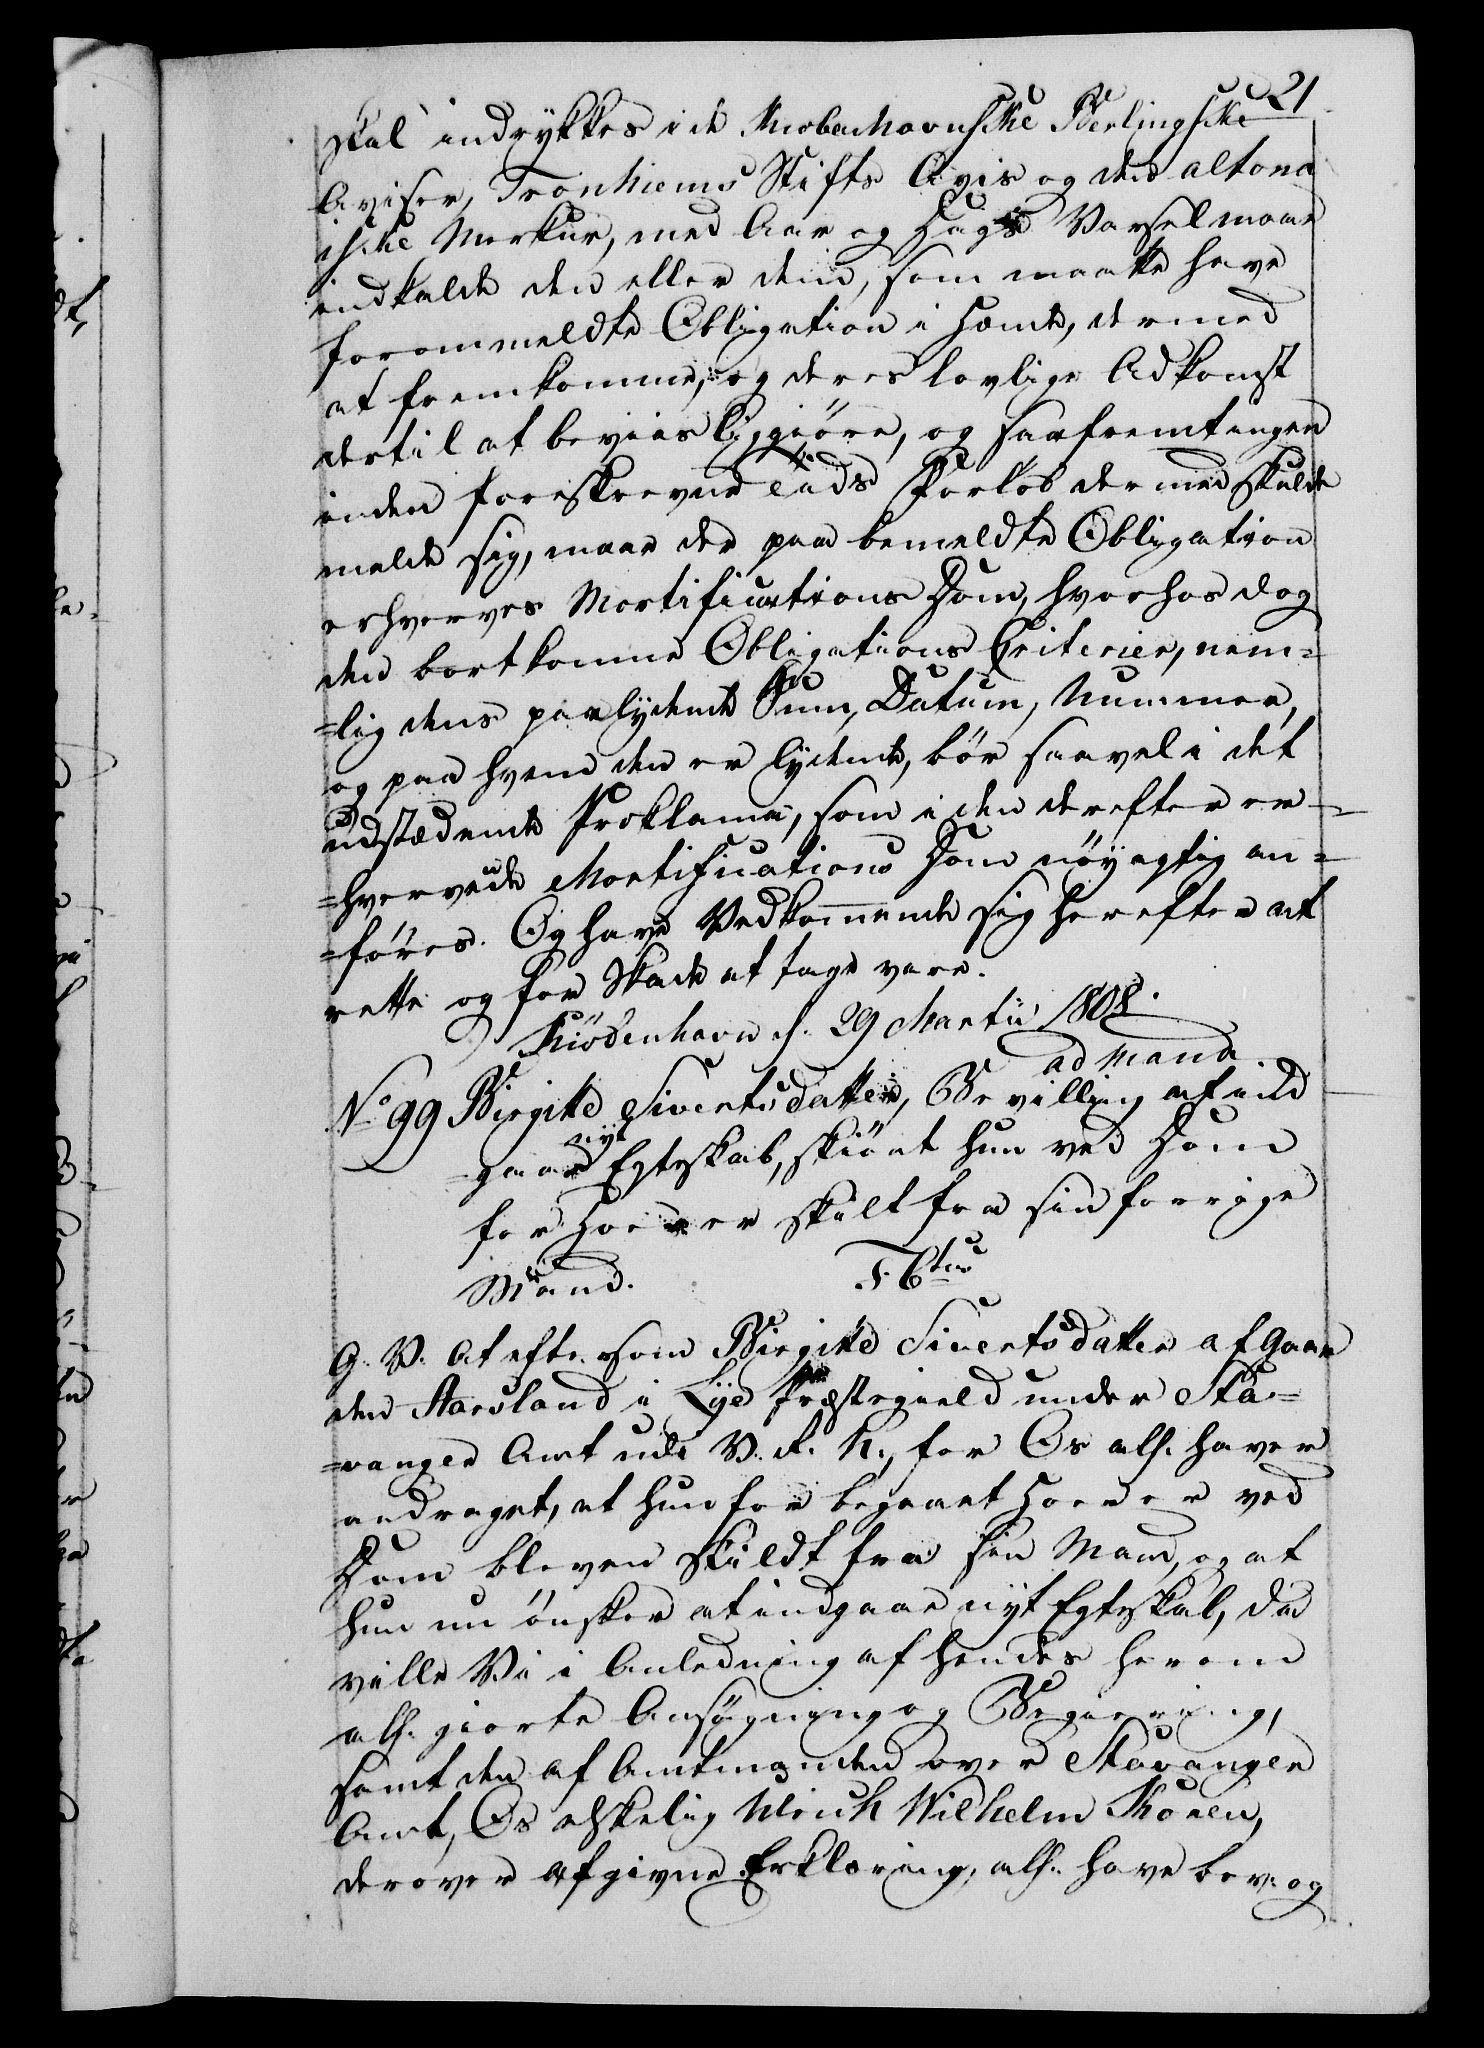 21
skal indrykkes i de Kiøbenhavnske Berlingske
Aviser, Tronhiems Stifts Avis og den altona
iske Merkur, med Aar og Dags Varsel maae
indkalde den eller dem, som maatte have
forommeldte Obligation i Hænde, dermed
at fremkomme, og deres lovlige Adkomst
dertil at beviisliggiøre, og saafremt ingen
inden foreskrevne Tiids Forløb dermed skulde
melde sig, maae der paa bemeldte Obligation
erhverves Mortifications Dom, hvorhos dog
den bortkomne Obligations Criterier, nem=
=lig dens paalydende Sum, Datum, Nummer,
og paa hvem den er lydende, bør saavel i det
udstædende Proklama, som i den derefter er=
=hvervede Mortifications Dom nøyagtig an=
=føres. Og have Vedkommende sig herefter at
rette og for Skade at tage vare.
Kiøbenhavn d. 29 Martii 1808.
ad mand
No 99 Birgitte Sivertsdatter, Bevilling at ind
gaae nyt Egteskab, skiønt hun ved Dom
for Hoer er skilt fra sin forrige
Mand.
G. V. At eftersom Birgitte Sivertsdatter af Gaar
den Aarsland i Lye Præstegield under Sta=
=vanger Amt udi V. R. N., for Os alh. haver
andraget, at hun for begaaet Hoer er ved
Dom bleven skildt fra sin Mand, og at
hun nu ønsker at indgaae nyt Egteskab, da
ville Vi i Anledning af hendes herom
alh. giorte Ansøgning og Begiering,
samt den af Amtmanden over Stavanger
Amt, Os elskelig Ulrich Wilhelm Koren,
derover afgivne Erklæring, alh. have bev. og